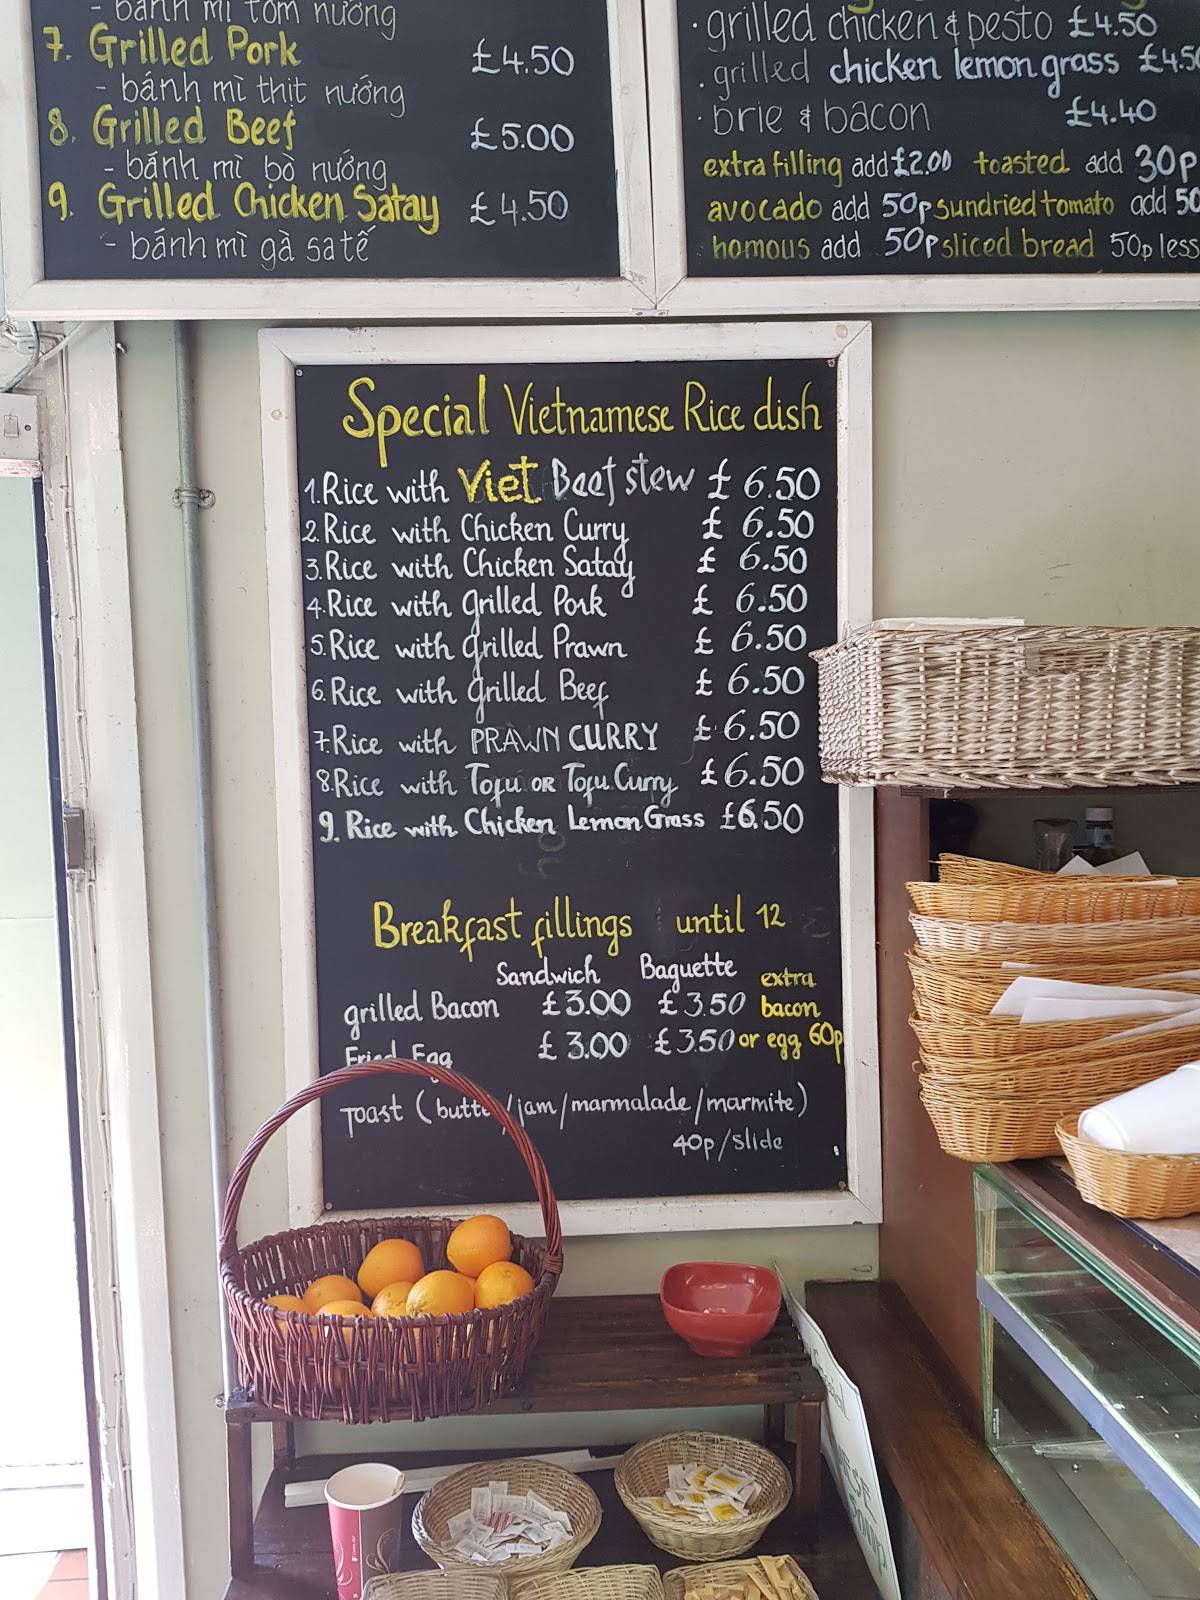 - bánh mì tôm nướng
7. Grilled Pork £4.50
- bánh mì thịt nướng
8. Grilled Beef £5.00
- bánh mì bò nướng
9. Grilled Chicken Satay £4.50
- bánh mì gà sa tế
· grilled chicken & pesto £4.50
· grilled chicken lemon grass £4.50
· brie & bacon £4.40
extra filling add £2.00 toasted add 30p
avocado add 50p sundried tomato add 50
homous add 50p sliced bread 50p less
Special Vietnamese Rice dish
1. Rice with Viet Beef stew £ 6.50
2. Rice with Chicken Curry £ 6.50
3. Rice with Chicken Satay £ 6.50
4. Rice with grilled Pork £ 6.50
5. Rice with grilled Prawn £ 6.50
6. Rice with grilled Beef £ 6.50
7. Rice with PRAWN CURRY £ 6.50
8. Rice with Tofu OR Tofu Curry £6.50
9. Rice with Chicken Lemon Grass £6.50
Breakfast fillings until 12
Sandwich Baguette extra
grilled Bacon £3.00 £3.50 bacon
Fried Egg £ 3.00 £3.50 or egg 60p
Toast (butter/jam/marmalade/marmite)
40p/slide